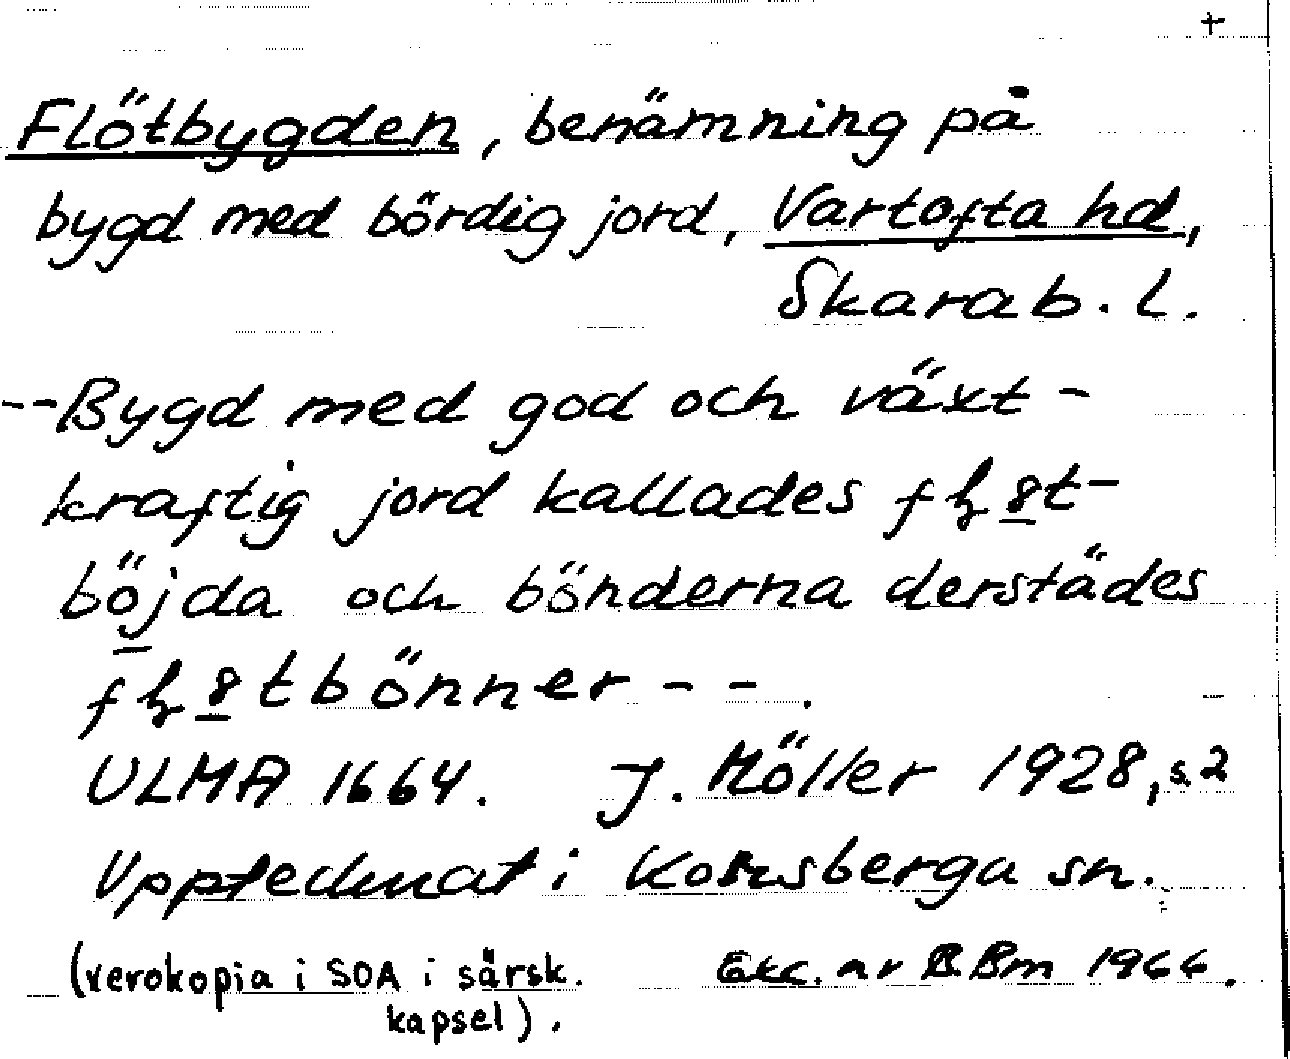 +
Flötbygden, benämning på
bygd med bördig jord, Vartofta hd,
Skarab. l.
--Bygd med god och växt-
kraftig jord kallades
böjda och bönderna derstädes
- - .
ULMA 1664. J. Möller 1928, s. 2
Upptecknat i Korsberga sn.
(xerokopia i SOA i särsk. Exc. av B. Bm 1966.
kapsel).